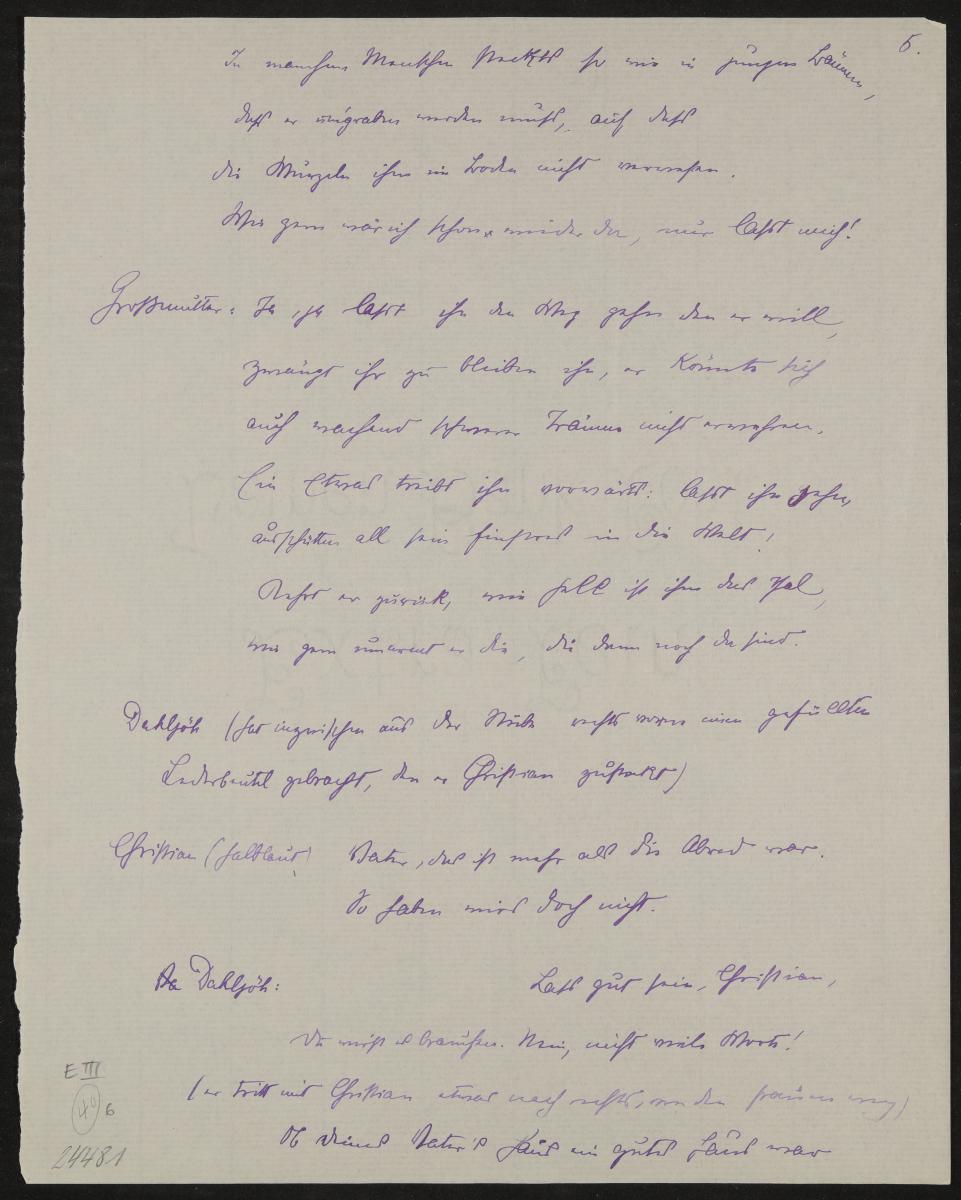 5.
In manchen Menschen steckts so wie in jungen Bäumen,
daß er umgraben werden muß, auf daß
die Wurzeln ihm im Boden nicht verwesen.
Wie gern wär ich schon wieder da, nur laßt mich!
Großmutter: Ja, ja laßt ihn den Weg gehen den er will,
zwängt ihr zu bleiben ihn, er könnte sich
auch wachend schwerer Träume nicht erwehren.
Ein Etwas treibt ihn vorwärts: laßt ihn gehn,
ausschütten all sein finstres in die Welt!
Kehrt er zurück, wie hell ist ihm das Thal,
wie gern umarmt er die, die dann noch da sind.
Dahljöh (hat inzwischen aus der Stube rechts vorne einen gefüllten
Lederbeutel gebracht, den er Christian zusteckt)
Christian (halblaut) Vater, das ist mehr als die Abred war.
So haben wirs doch nicht.
Dahljöh: Laß gut sein, Christian,
Du wirst es brauchen. Nein, nicht viele Worte!
(er tritt mit Christian etwas nach rechts, von den Frauen weg)
Ob deines Vater's Haus ein gutes Haus war
E III
40 6
24481